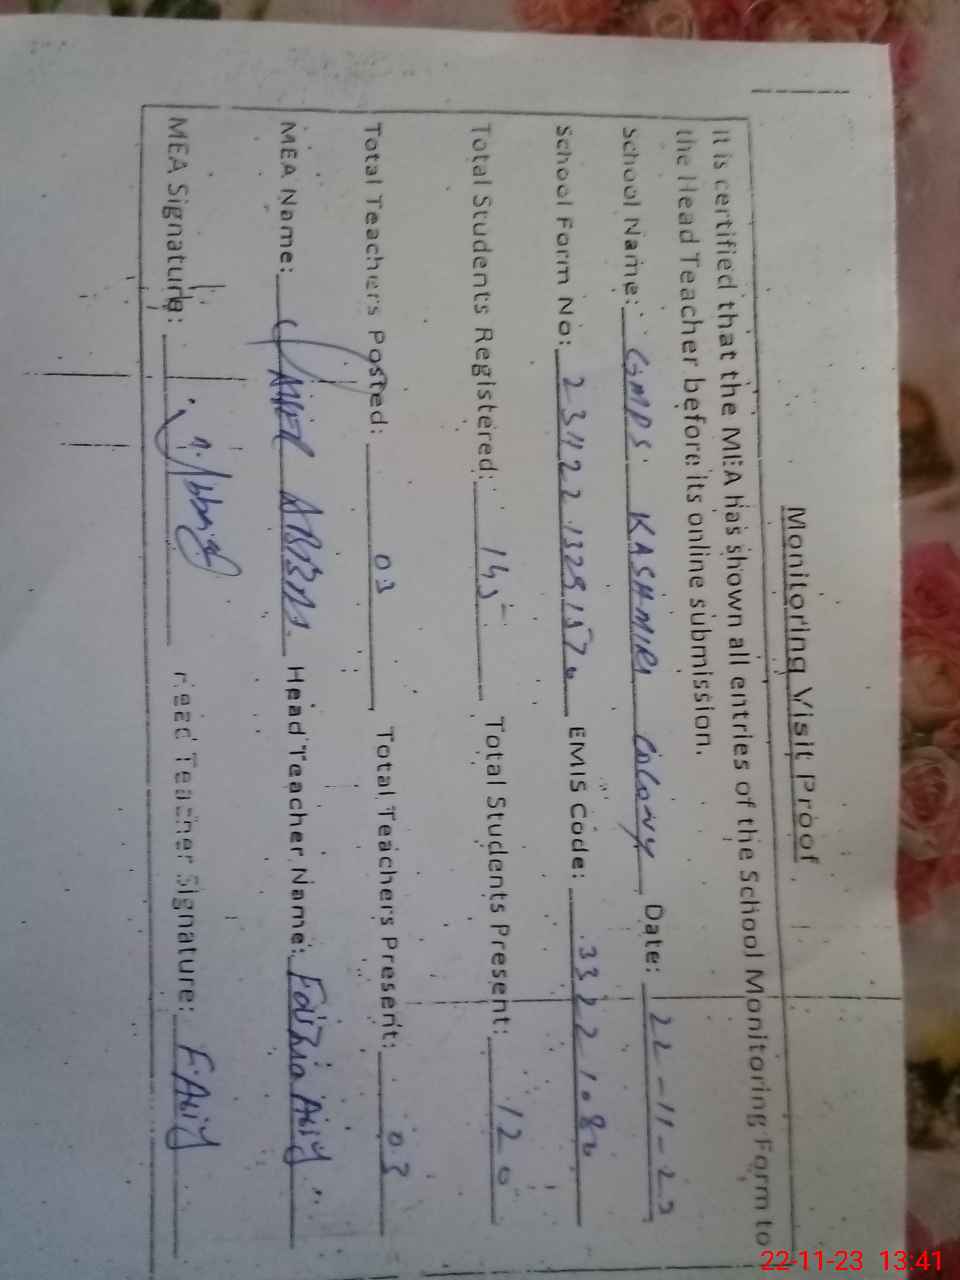 Monitoring Visit Proof
It is certified that the MEA has shown all entries of the School Monitoring Form to
the Head Teacher before its online submission.
School Name: GMPS. KASHMIRI COLONY Date: 22-11-23
School Form No: EMIS Code: 33221080
Total Students Registered: 145 Total Students Present: 120
Total Teachers Posted: 03 Total Teachers Present: 03
MEA Name: ABBAS. Head Teacher Name: Fouzia
MEA Signature: Head Teacher Signature:
22-11-23 13:41